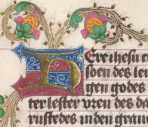 Here ihesu c
soen des leu
gen godes
ter lester vren des da
rustedes in den grau